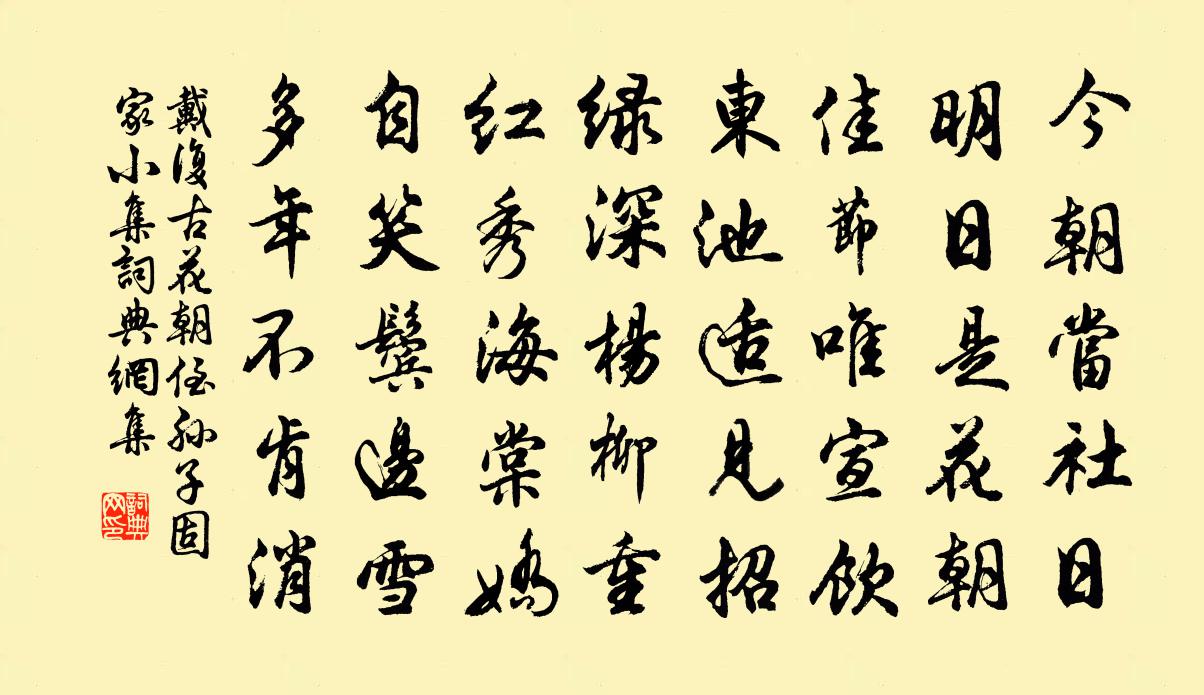 今朝當社日
明日是花朝
佳節唯宣飲
東池适見招
绿深楊柳重
红秀海棠嬌
自笑鬢邊雪
多年不肯消
戴復古花朝侄孙子固
家小集詞典網集
詞典网印